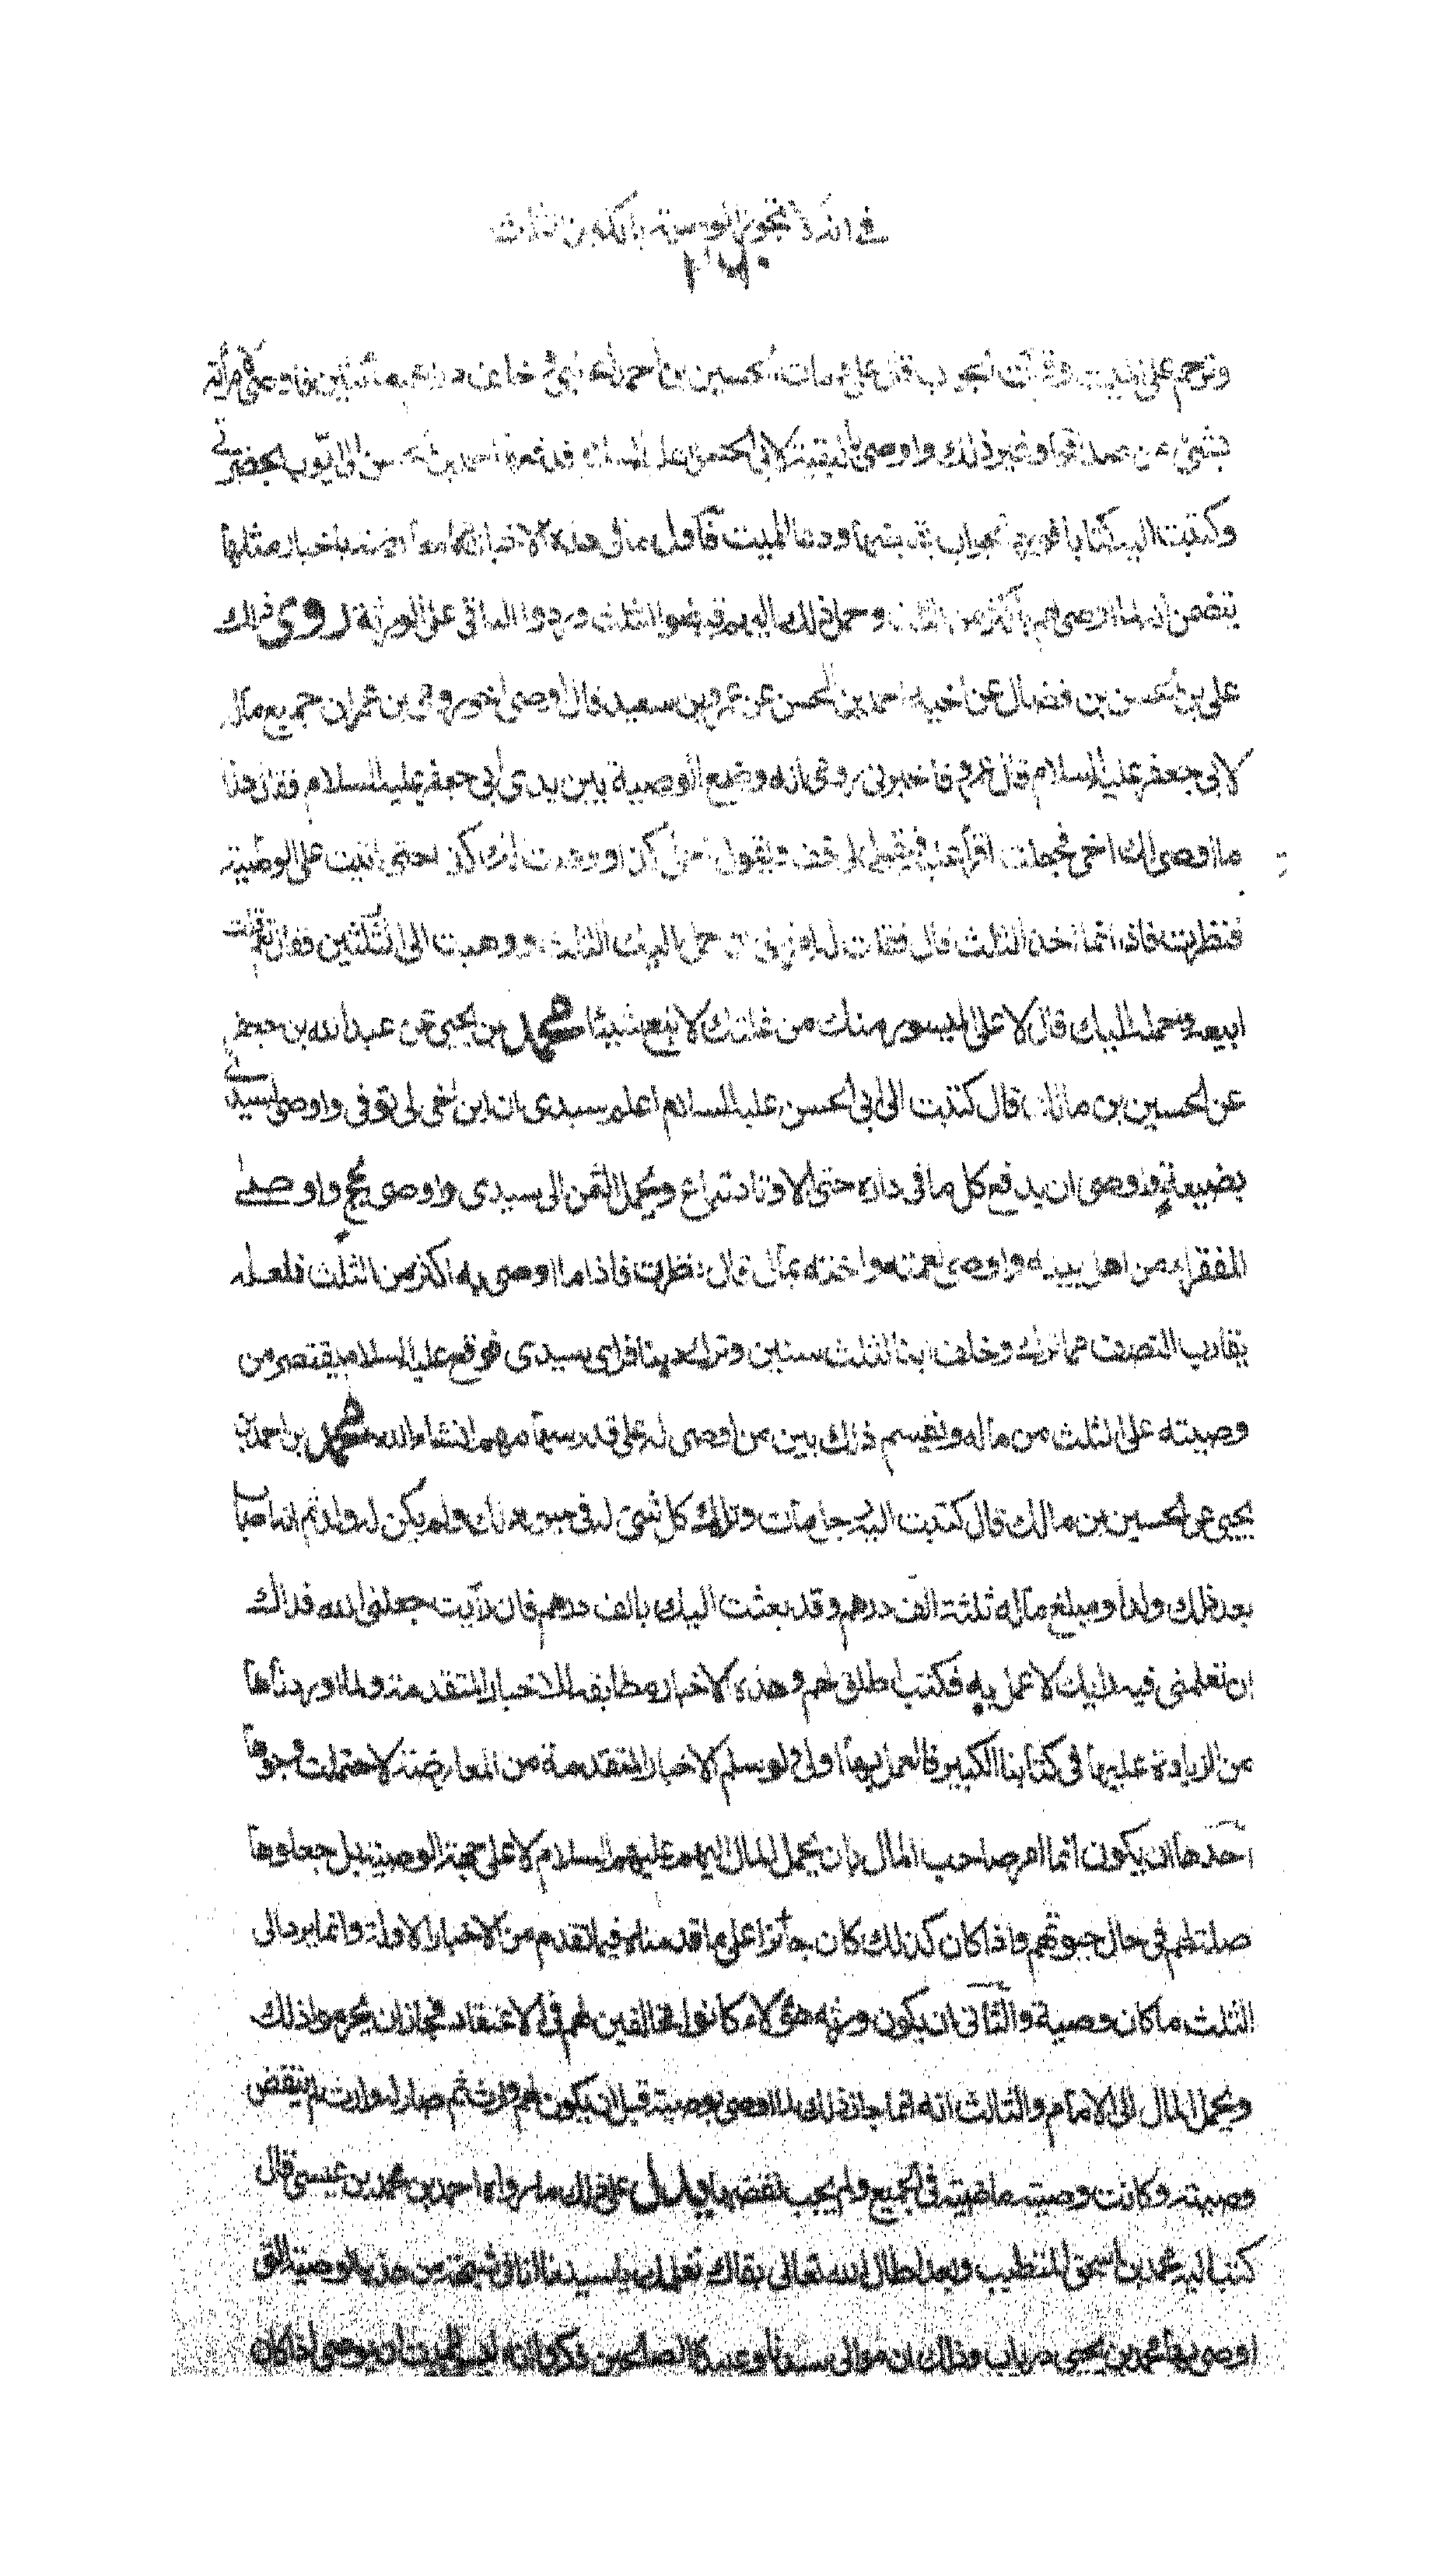 في انه لا تجوز الوصية باكثر من الثلث
وترحم على الميت وقرأت الجواب قال علي ومات الحسين بن احمد الحلبي وخلف دراهم مأتين فاوصى لامرأته
بشئ من صداقها وغير ذلك واوصى بالبقية لابي الحسن عليه السلام فدفعها احمد بن الحسن الى ايوب بحضرتي
وكتبت اليه كتابا فورد الجواب بقبضها ودعا للميت فاول ما في هذه الاخبار انها معارضة باخبار مثلها
يتضمن انه لما اوصى لهم باكثر من الثلث وحمل ذلك اليهم قبضوا الثلث وردوا الباقي على الورثة روى ذلك
علي بن الحسن بن فضال عن اخيه احمد بن الحسن عن عمرو بن سعيد قال اوصى اخو رومي بن عمران جميع ماله
لابي جعفر عليه السلام قال عمرو فاخبرني رومي انه وضع الوصية بين يدي ابي جعفر عليه السلام فقال هذا
ما اوصى لك اخي فجعلت اقرأ عليه فيقول لي قف ويقول احمل كذا ووهبت لك كذا حتى اتيت على الوصية
فنظرت فاذا انما اخذ الثلث قال فقلت له امرتني ان احمل اليك الثلث ووهبت الي الثلثين فقال نعم قلت
ابيعه واحمله اليك قال لا على الميسور منك من غلتك لا تبع شيئا محمد بن يحيى عن عبد الله بن جعفر
عن الحسين بن مالك قال كتبت الى ابي الحسن عليه السلام اعلم سيدي ان ابن اخي لي توفى واوصى لسيدي
بضيعة واوصى ان يدفع كل ما في داره حتى الاوتاد تباع ويحمل الثمن الى سيدي واوصى بحج واوصى
للفقراء من اهل بيته واوصى لعمته واخته بمال قال نظرت فاذا ما اوصى به اكثر من الثلث فلعله
يقارب النصف مما ترك وخلف ابنا لثلث سنين وترك دينا فرأى سيدي فوقع عليه السلام يقتصر من
وصيته على الثلث من ماله ويقسم ذلك بين من اوصى له على قدر سهامهم انشاء الله محمد بن احمد بن
يحيى عن الحسين بن مالك قال كتبت اليه رجل مات وترك كل شئ له في حيوته لك ولم يكن له ولد ثم انه اصاب
بعد ذلك ولدا ومبلغ ماله ثلثة الف درهم وقد بعثت اليك بالف درهم فان رأيت جعلني الله فداك
ان تعلمني فيه رأيك لاعمل به فكتب اطلق لهم وهذه الاخبار مطابقة للاخبار المتقدمة ولما اوردناها
من الزيادة عليها في كتابنا الكبير فالعمل بها اولى ولو سلم الاخبار المتقدمة من المعارضة لاحتملت وجوها
احدها ان يكون انما امر صاحب المال بان يحمل المال اليهم عليهم السلام لا على جهة الوصية بل جعلوها
صلة لهم في حال حيوتهم واذا كان كذلك كان جائزا على ما قدمناه فيما تقدم من الاخبار الاولة وانما يرد الى
الثلث ما كان وصية والثاني ان يكون ورثه هؤلاء كانوا مخالفين لهم في الاعتقاد فجاز ان يحرموا ذلك
ويحمل المال الى الامام والثالث انه انما جاز ذلك لما اوصى بوصيته قبل ان يكون لهم وارث ثم صار له وارث لم ينقض
وصيته وكانت وصيته ماضية في الجميع ولم يجب نقضها يدل على ذلك ما رواه احمد بن محمد بن عيسى قال
كتب اليه محمد بن اسحق المتطبب وبعد اطال الله تعالى بقاك نعلمك يا سيدنا انا في شبهة من هذه الوصية التي
اوصى بها محمد بن يحيى درياب وذلك ان موالي سيدنا وعبيده الصالحين ذكروا انه ليس للميت ان يوصي اذا كان